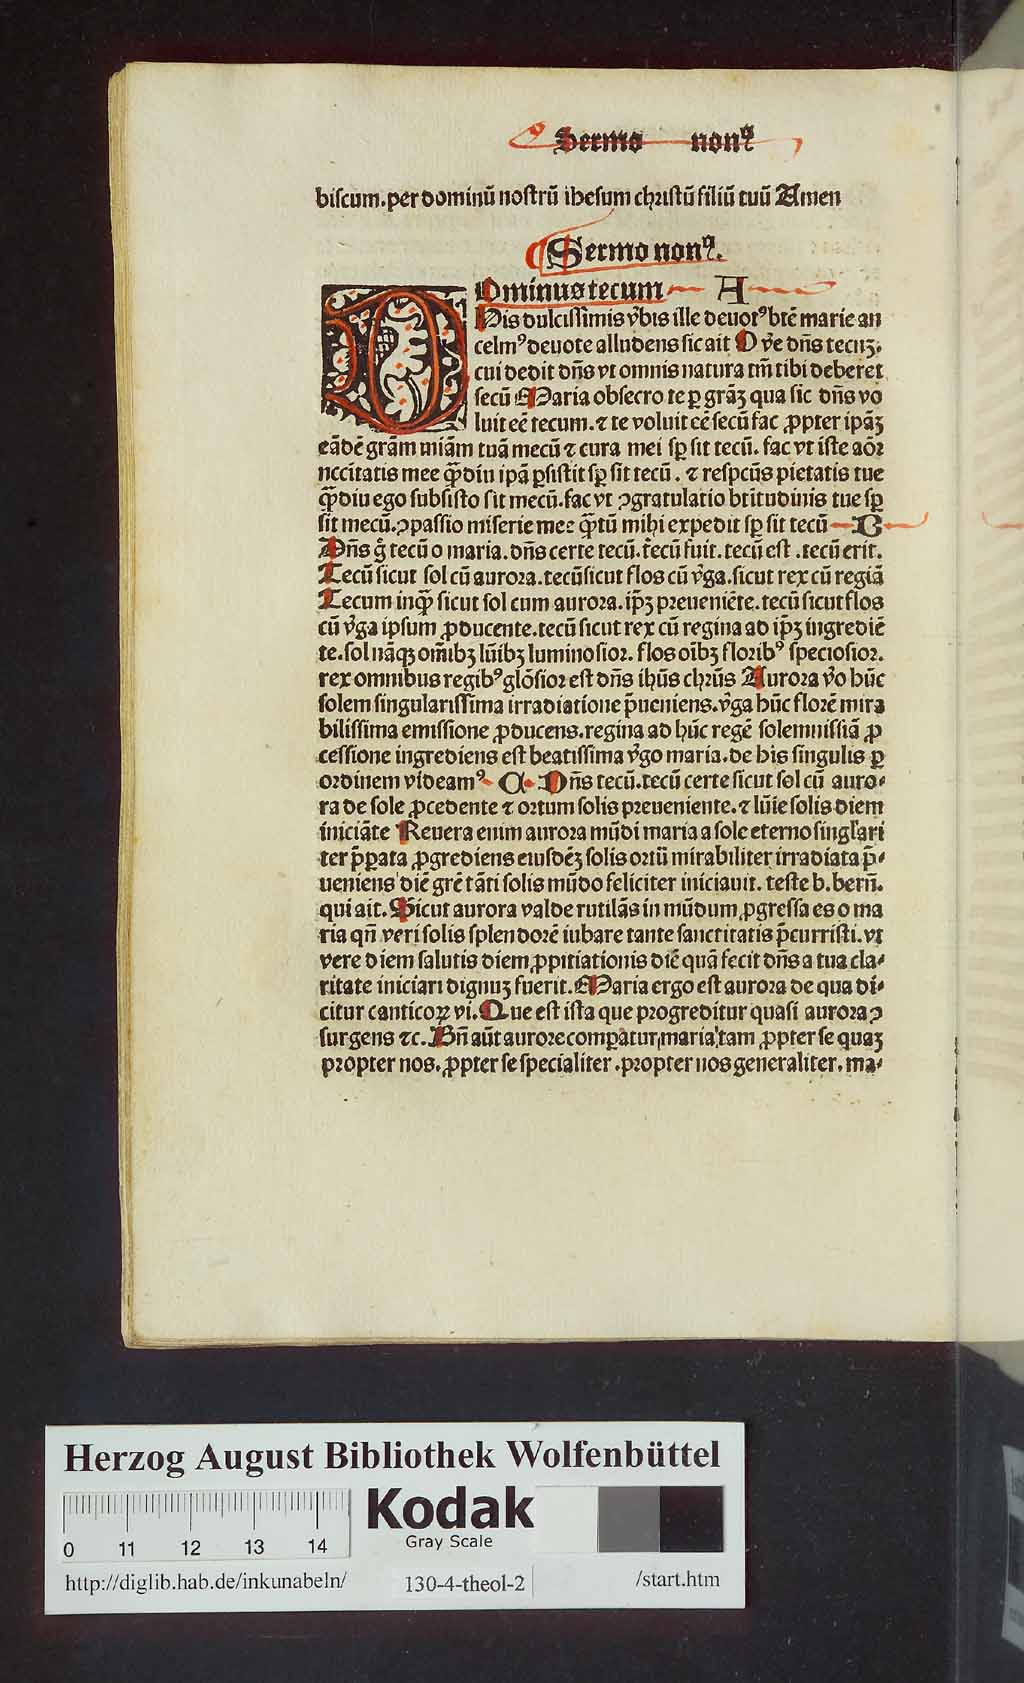 Sermo nonꝰ
biscum. per dominū nostrū ihesum christū filiū tuū Amen
Sermo nonꝰ.
Dominus tecum A
His dulcissimis v̄bis ille deuotꝰ btē marie an
celmꝰ deuote alludens sic ait O v̄e dn̄s tecuꝫ.
cui dedit dn̄s vt omnis natura tm̄ tibi deberet
secū Maria obsecro te ꝑ grāꝫ qua sic dn̄s vo
luit eē tecum. ⁊ te voluit eē secū fac ꝓpter ipāꝫ
eādē grām miām tuā mecū ⁊ cura mei sꝑ sit tecū. fac vt iste aōꝛ
nccītatis mee qᷓ̄diu ipā ꝑsistit sꝑ sit tecū. ⁊ respcūs pietatis tue
qᷓ̄diu ego subsisto sit mecū. fac vt ꝯgratulatio btītudinis tue sꝑ
sit mecū. ꝯpassio miserie mee qᷓ̄tū mihi expedit sꝑ sit tecū B
Dn̄s g̊ tecū o maria. dn̄s certe tecū. tecū fuit. tecū est. tecū erit.
Tecū sicut sol cū aurora. tecū sicut flos cū v̄ga. sicut rex cū regiā
Tecum inqᷓ sicut sol cum aurora. ip̄ꝫ preueniēte. tecū sicut flos
cū v̄ga ipsum ꝓducente. tecū sicut rex cū regina ad ip̄ꝫ ingrediē
te. sol nāqꝫ om̄ibꝫ lūibꝫ luminosior. flos oībꝫ floribꝰ speciosior.
rex omnibus regibꝰ glōsior est dn̄s ihūs chrūs Aurora v̄o hūc
solem singularissima irradiatione p̄ueniens. v̄ga hūc florē mira
bilissima emissione ꝓducens. regina ad hūc regē solemnissiā ꝓ
cessione ingrediens est beatissima v̄go maria. de his singulis ꝑ
ordinem videamꝰ C Dn̄s tecū. tecū certe sicut sol cū auro-
ra de sole ꝓcedente ⁊ ortum solis preueniente. ⁊ lūie solis diem
iniciāte Reuera enim aurora mūdi maria a sole eterno singl'ari
ter p̄ꝑata ꝓgrediens eiusdēꝫ solis ortū mirabiliter irradiata p̄-
ueniens diē grē tāti solis mūdo feliciter iniciauit. teste b. bern̄.
qui ait. Sicut aurora valde rutilās in mūdum ꝓgressa es o ma
ria qn̄ veri solis splendorē iubare tante sanctitatis p̄curristi. vt
vere diem salutis diem ꝓpitiationis diē quā fecit dn̄s a tua cla-
ritate iniciari dignuꝫ fuerit. Maria ergo est aurora de qua di-
citur canticoꝝ vi. Que est ista que progreditur quasi aurora ꝯ
surgens ⁊c. Bn̄ aūt aurore comꝑatur maria tam ꝓpter se quaꝫ
propter nos. ꝓpter se specialiter. propter nos generaliter. ma-
Herzog August Bibliothek Wolfenbüttel
Kodak
Gray Scale
0 11 12 13 14
http://diglib.hab.de/inkunabeln/ 130-4-theol-2 /start.htm